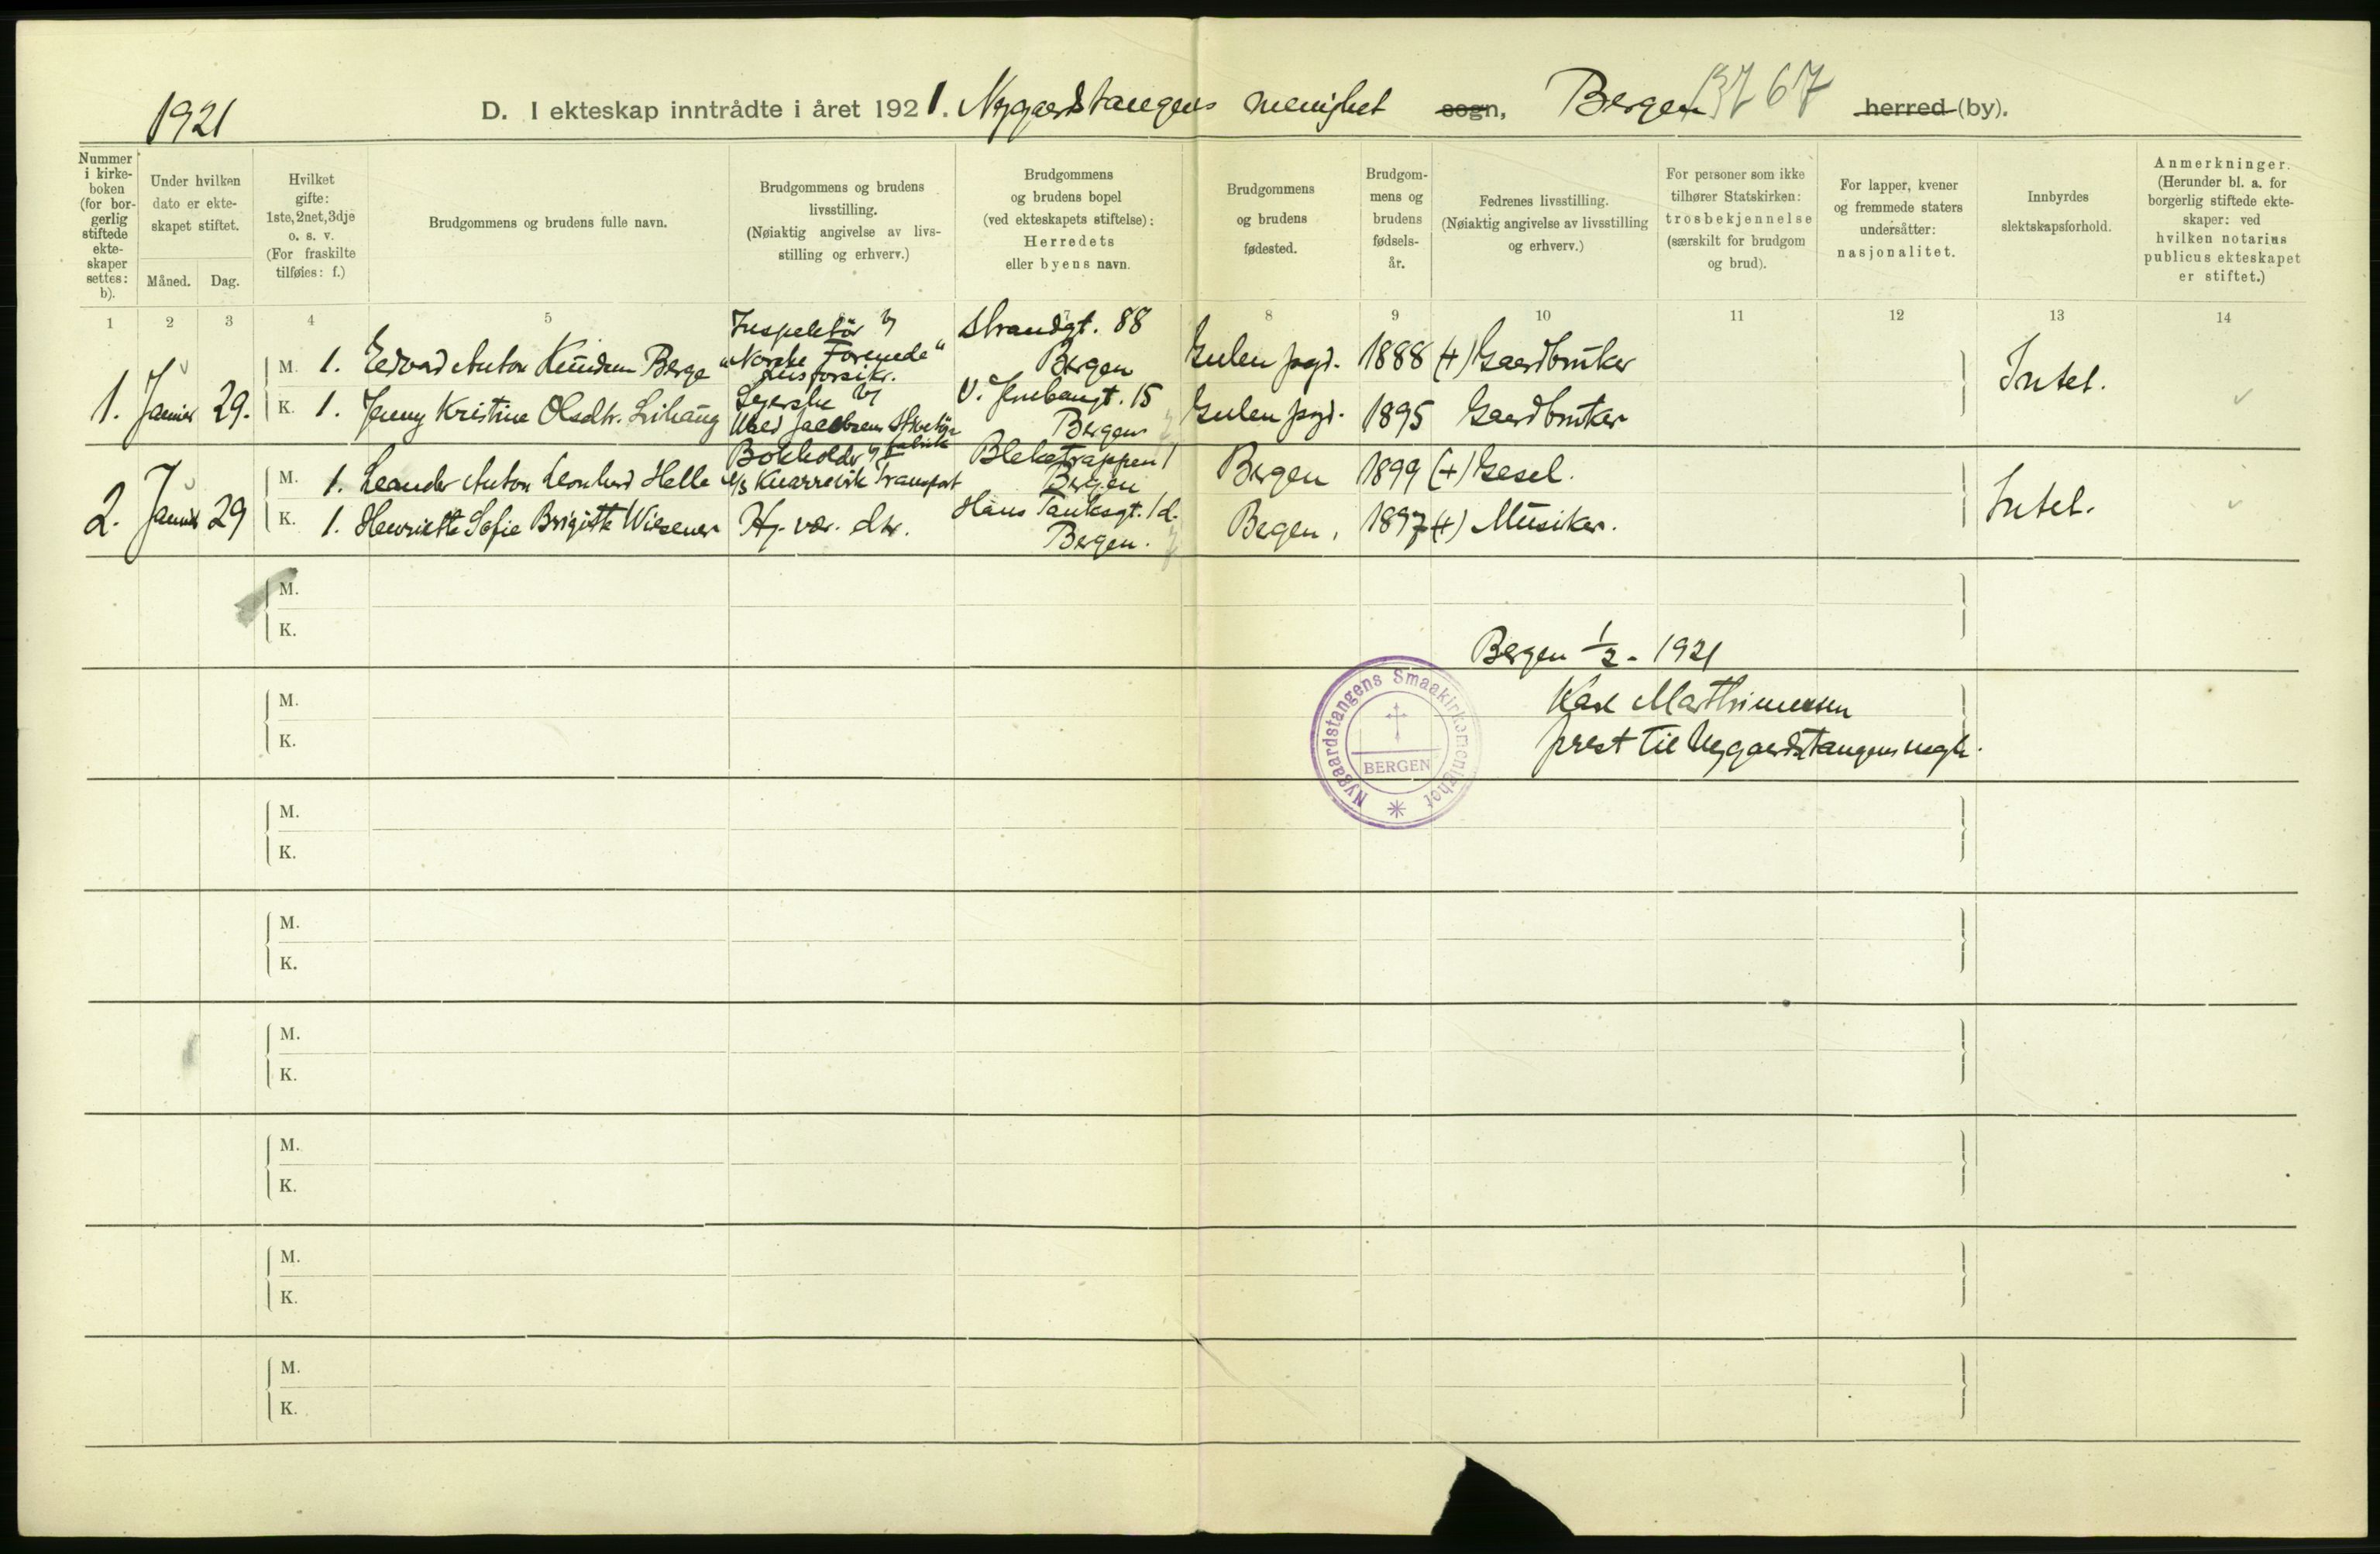 1921
D. I ekteskap inntrådte i året 1921. Nygaardstangens menighet sogn, Bergen herred (by).
Nummer i kirke-boken (for bor-gerlig stiftede ekte-skaper settes: b).
Under hvilken dato er ekte-skapet stiftet.
Måned. Dag.
Hvilket gifte: 1ste, 2net, 3dje o. s. v. (For fraskilte tilføies: f.)
Brudgommens og brudens fulle navn.
Brudgommens og brudens livsstilling. (Nøiaktig angivelse av livs-stilling og erhverv.)
Brudgommens og brudens bopel (ved ekteskapets stiftelse): Herredets eller byens navn.
Brudgommens og brudens fødested.
Brudgom-mens og brudens fødsels-år.
Fedrenes livsstilling. (Nøiaktig angivelse av livsstilling og erhverv.)
For personer som ikke tilhører Statskirken: trosbekjennelse (særskilt for brudgom og brud).
For lapper, kvener og fremmede staters undersåtter: nasjonalitet.
Innbyrdes slektskapsforhold.
Anmerkninger. (Herunder bl. a. for borgerlig stiftede ekte-skaper: ved hvilken notarius publicus ekteskapet er stiftet.)
1 2 3 4 5 7 8 9 10 11 12 13 14
1. Januar 29.
M. 1. Edvard Anton Knudsen Berge Inspektör v/ "Norske Forenede" Livsforsikr. Strandgt. 88 Bergen Gulen pgd. 1888 (+) Gaardbruker Intet.
K. 1. Jenny Kristine Olsdtr. Lihaug Syerske v/ Jacobsens fabrik V. 15 Bergen Gulen pgd. 1895 Gaardbruker
2. Januar 29
M. 1. Leander Anton Leonhard Helle Bokholder v/ A/S Knarrevik Transport Bleketrappen 1 Bergen Bergen 1899 (+) Gesel. Intet.
K. 1. Henriette Sofie Brigitte Wiesener Hj. vær. dtr. Hans Tanksgt. 1 d. Bergen. Bergen. 1897 (+) Musiker.
M.
K.
Bergen 1/2 - 1921
M.
K.
Karl Marthinussen
prest til Nygaardstangens mgh.
Nygaardstangens Smaakirkemenighet
BERGEN
M.
K.
M.
K.
M.
K.
M.
K.
M.
K.
M.
K.